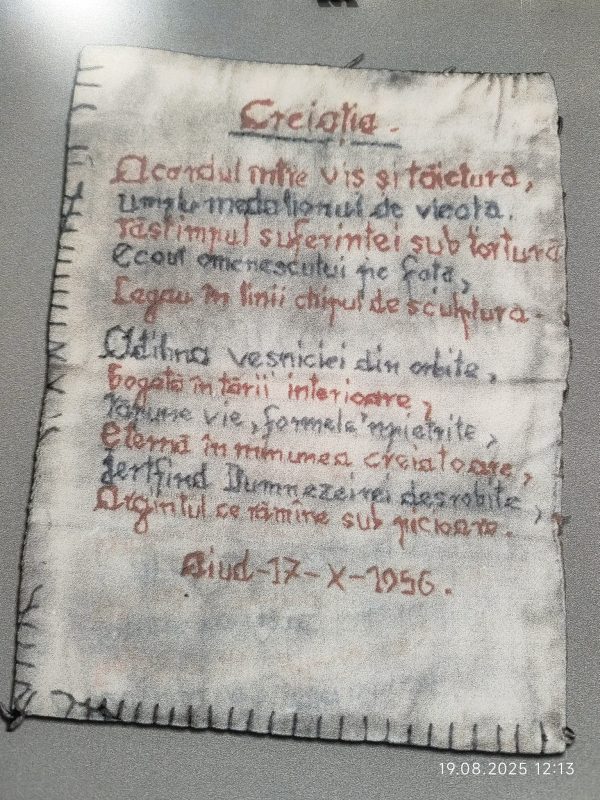 Creiația.
Acordul între vis și tăietură,
Umplu medalionul de vieața.
răstimpul suferintei sub tortură
Ecoul omenescului pe fața,
Legau în linii chipul de sculptura.
Odihna vesniciei din orbite,
bogată în tării interioare,
rămîne vie, formele 'npietrite,
eternă în minunea creiatoare,
jertfind Dumnezeirei desrobite,
Argintul ce rămîne sub picioare.
Aiud-17-X-1956.
19.08.2025 12:13